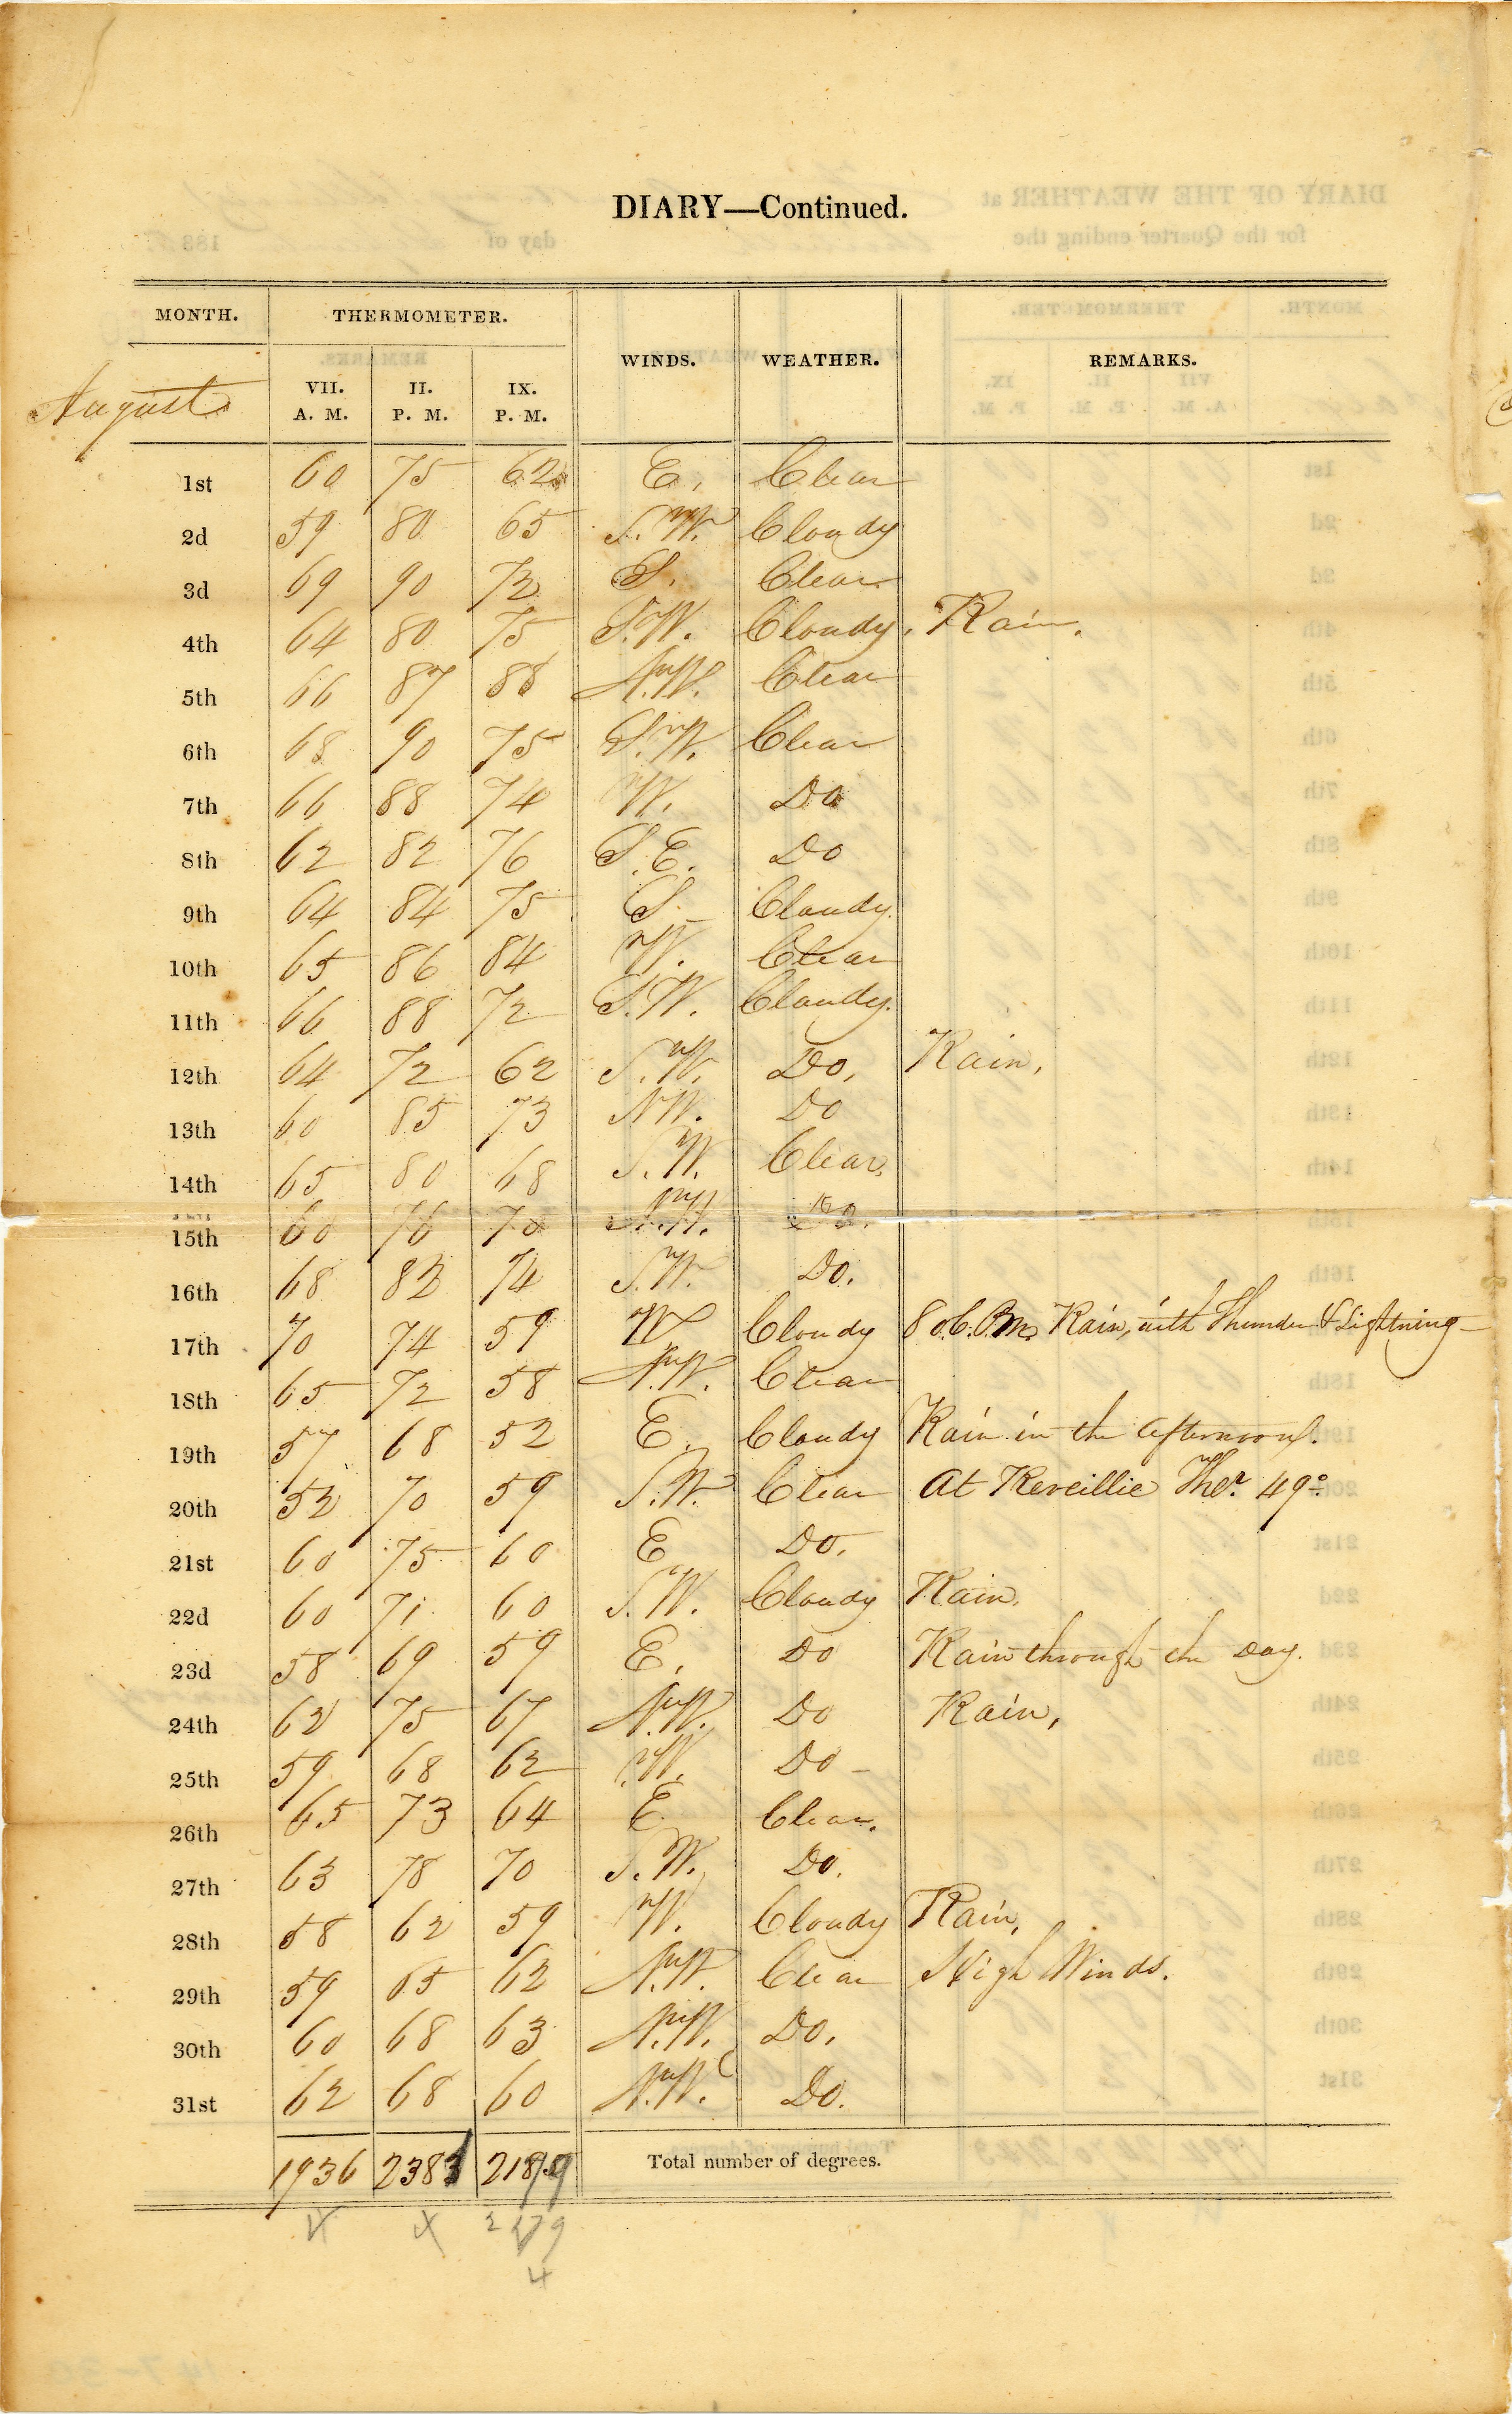 DIARY—Continued.
MONTH. THERMOMETER. WINDS. WEATHER. REMARKS.
August VII. A. M. II. P. M. IX. P. M.
1st 60 75 62 E. Clear
2d 59 80 65 S.W. Cloudy
3d 69 90 72 S. Clear
4th 64 80 75 S.W. Cloudy. Rain.
5th 66 87 88 N.W. Clear
6th 68 90 75 S.W. Clear
7th 66 88 74 W. Do
8th 62 82 76 S.E. Do
9th 64 84 75 S. Cloudy.
10th 65 86 84 W. Clear
11th 66 88 72 S.W. Cloudy.
12th 64 72 62 S.W. Do, Rain,
13th 60 85 73 N.W. Do
14th 65 80 68 S.W. Clear,
15th 60 76 70 N.W. Do.
16th 68 82 74 S.W. Do.
17th 70 74 59 W. Cloudy 8 oC. P.M. Rain, with Thunder & Lightning
18th 65 72 58 N.W. Clear
19th 57 68 52 E. Cloudy Rain in the afternoon.
20th 52 70 59 S.W. Clear At Reveillie Ther. 49°
21st 60 75 60 E Do.
22d 60 71 60 S.W. Cloudy Rain.
23d 58 69 59 E. Do Rain through the Day.
24th 62 75 67 N.W. Do Rain,
25th 59 68 62 W. Do -
26th 65 73 64 E. Clear.
27th 63 78 70 S.W. Do.
28th 58 62 59 W. Cloudy Rain,
29th 59 65 62 N.W. Clear High Winds.
30th 60 68 63 N.W. Do.
31st 62 68 60 N.W. Do.
1936 2381 Total number of degrees.